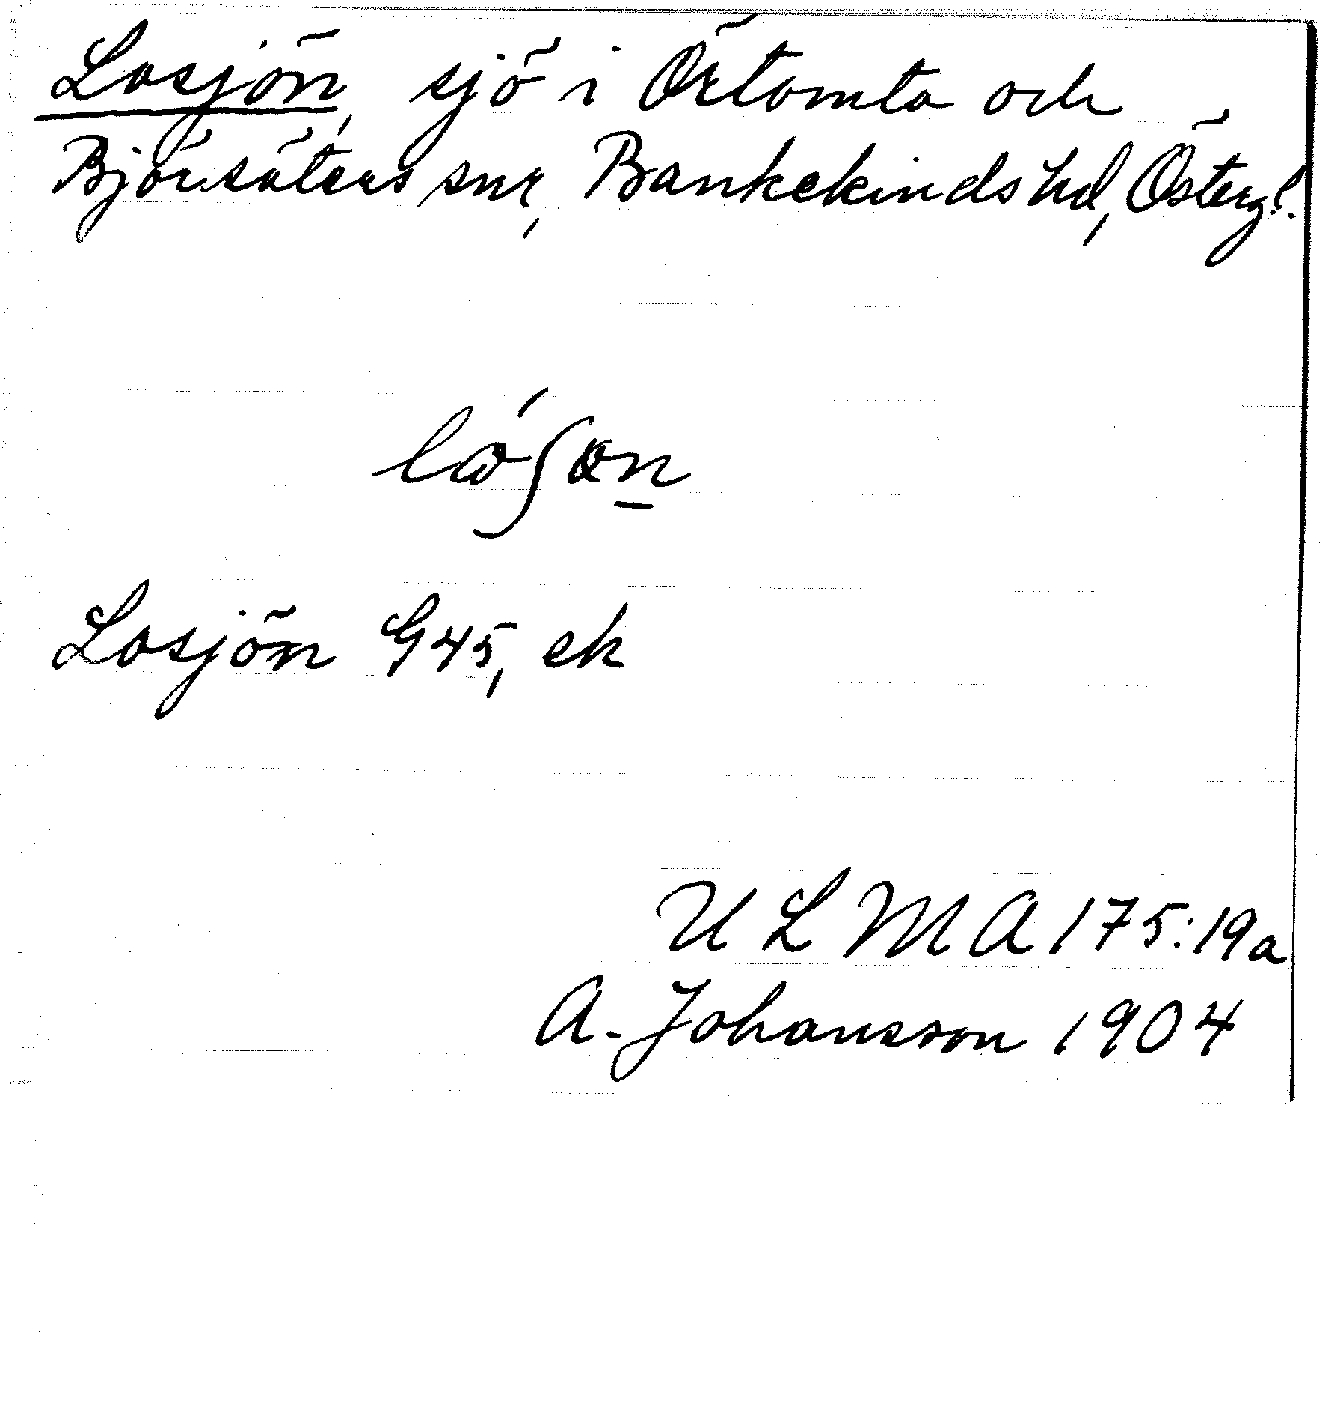 Losjön, sjö i Örtomta och
Björsäters snr, Bankekinds hd, Österg!.
Losjön G45, ek
ULMA 175:19a
A. Johansson 1904